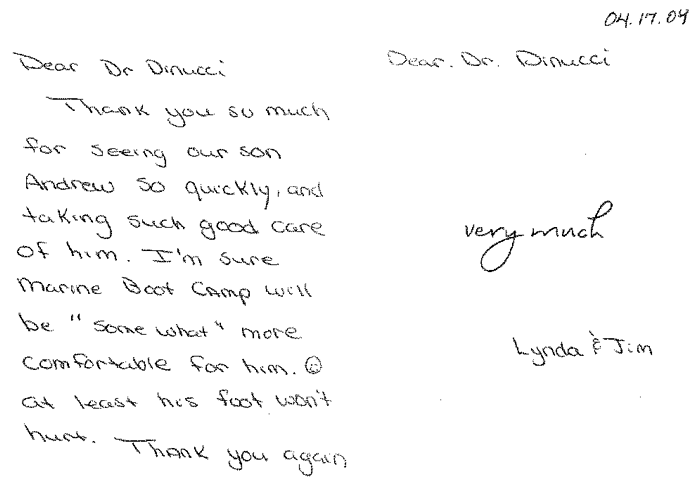 04.17.09
Dear Dr Dinucci
Thank you so much
for seeing our son
Andrew so quickly, and
taking such good care
of him. I'm sure
Marine Boot Camp will
be "some what" more
comfortable for him. ☺
at least his foot won't
hurt. Thank you again
Dear. Dr. Dinucci
very much
Lynda & Jim